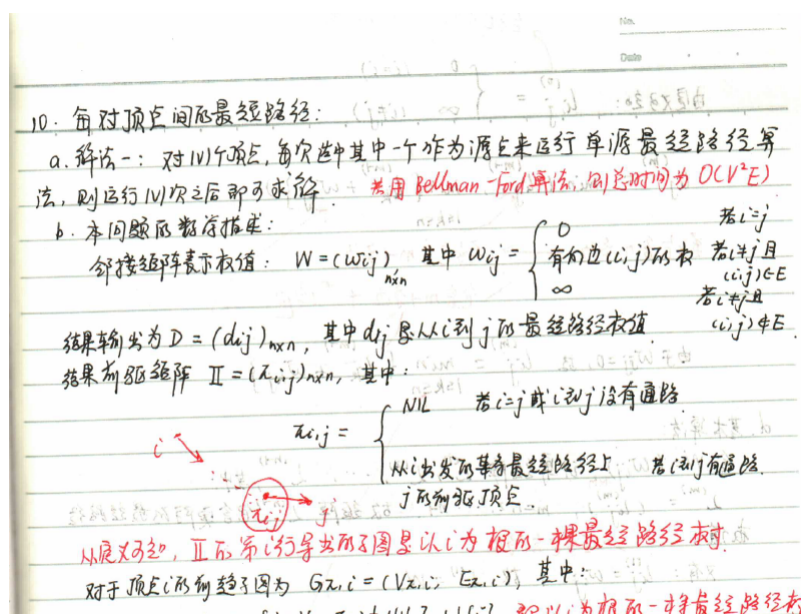 No.
Date
10. 每对顶点间的最短路径:
a. 解法一: 对|V|个顶点, 每次选中其中一个作为源点来运行单源最短路径算
法, 则运行|V|次之后即可求解. 若用Bellman-Ford算法, 则总时间为O(V²E)
b. 本问题的数学描述:
邻接矩阵表示权值: W=(wij)n×n 其中 wij = { 0 若i=j
有向边(i,j)的权 若i≠j且(i,j)∈E
∞ 若i≠j且(i,j)∉E
结果输出为D=(dij)n×n, 其中dij是从i到j的最短路径权值
结果前驱矩阵 Π=(πi,j)n×n, 其中:
πi,j = { NIL 若i=j或i到j没有通路
从i出发的某条最短路径上 若i到j有通路.
j的前驱顶点
i
πi,j
j
从定义可知, Π的第i行导出的子图是以i为根的一棵最短路径树.
对于顶点i的前趋子图为 Gπ,i=(Vπ,i, Eπ,i), 其中:
以i为根的一棵最短路径树